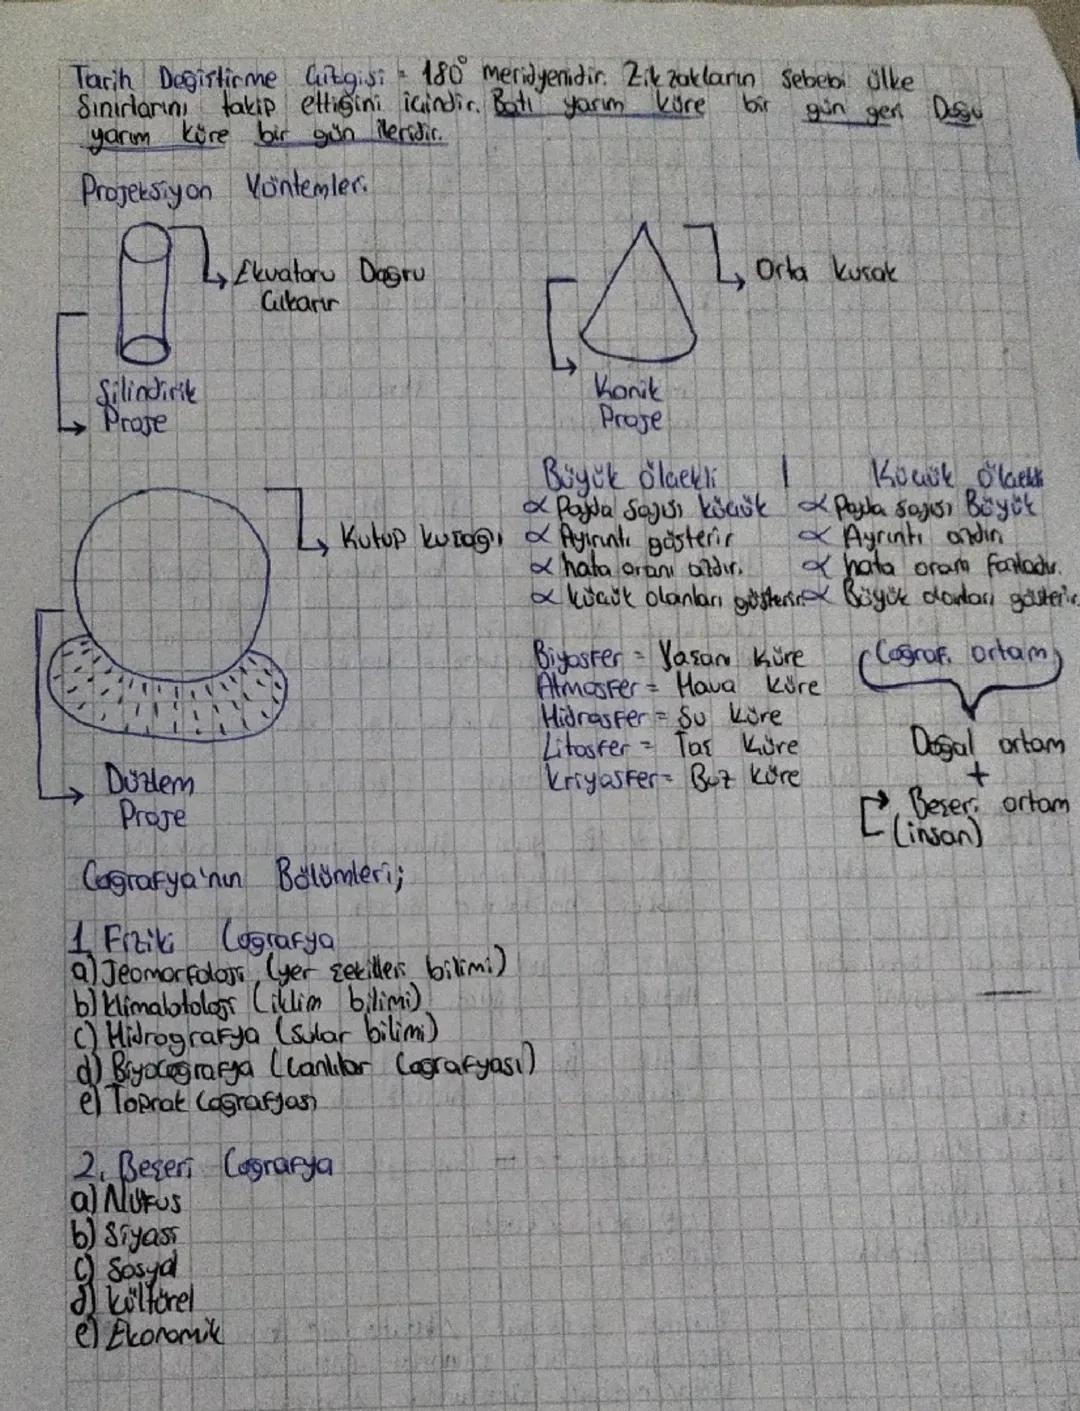 Tarih Değiştirme Çizgisi = 180° meridyenidir. Zikzakların sebebi ülke
sınırlarını takip ettiğini içindir. Batı yarım küre bir gün geri Doğu
yarım küre bir gün ileridir.
Projeksiyon Yöntemleri
Ekvatoru Doğru
Çıkarır
Silindirik
Proje
Orta kuşak
Konik
Proje
Kutup kuşağı
Düzlem
Proje
Büyük ölçekli
α Payda sayısı küçük
α Ayrıntı gösterir
α hata oranı azdır.
α küçük olanları gösterir
Küçük ölçekli
α Payda sayısı Büyük
α Ayrıntı azdır
α hata oranı fazladır.
α Büyük olanları gösterir.
Biyosfer = Yaşam Küre
Atmosfer = Hava Küre
Hidrosfer = Su Küre
Litosfer = Taş Küre
Kriyosfer = Buz Küre
Coğrafi ortam
Doğal ortam
+
Beşeri ortam
(insan)
Coğrafya'nın Bölümleri;
1 Fiziki Coğrafya
a) Jeomorfoloji (yer şekilleri bilimi)
b) Klimalotoloji (iklim bilimi)
c) Hidrografya (sular bilimi)
d) Biyocoğrafya (Canlılar Coğrafyası)
e) Toprak Coğrafyası
2. Beşeri Coğrafya
a) Nüfus
b) Siyasi
c) Sosyal
d) Kültürel
e) Ekonomik